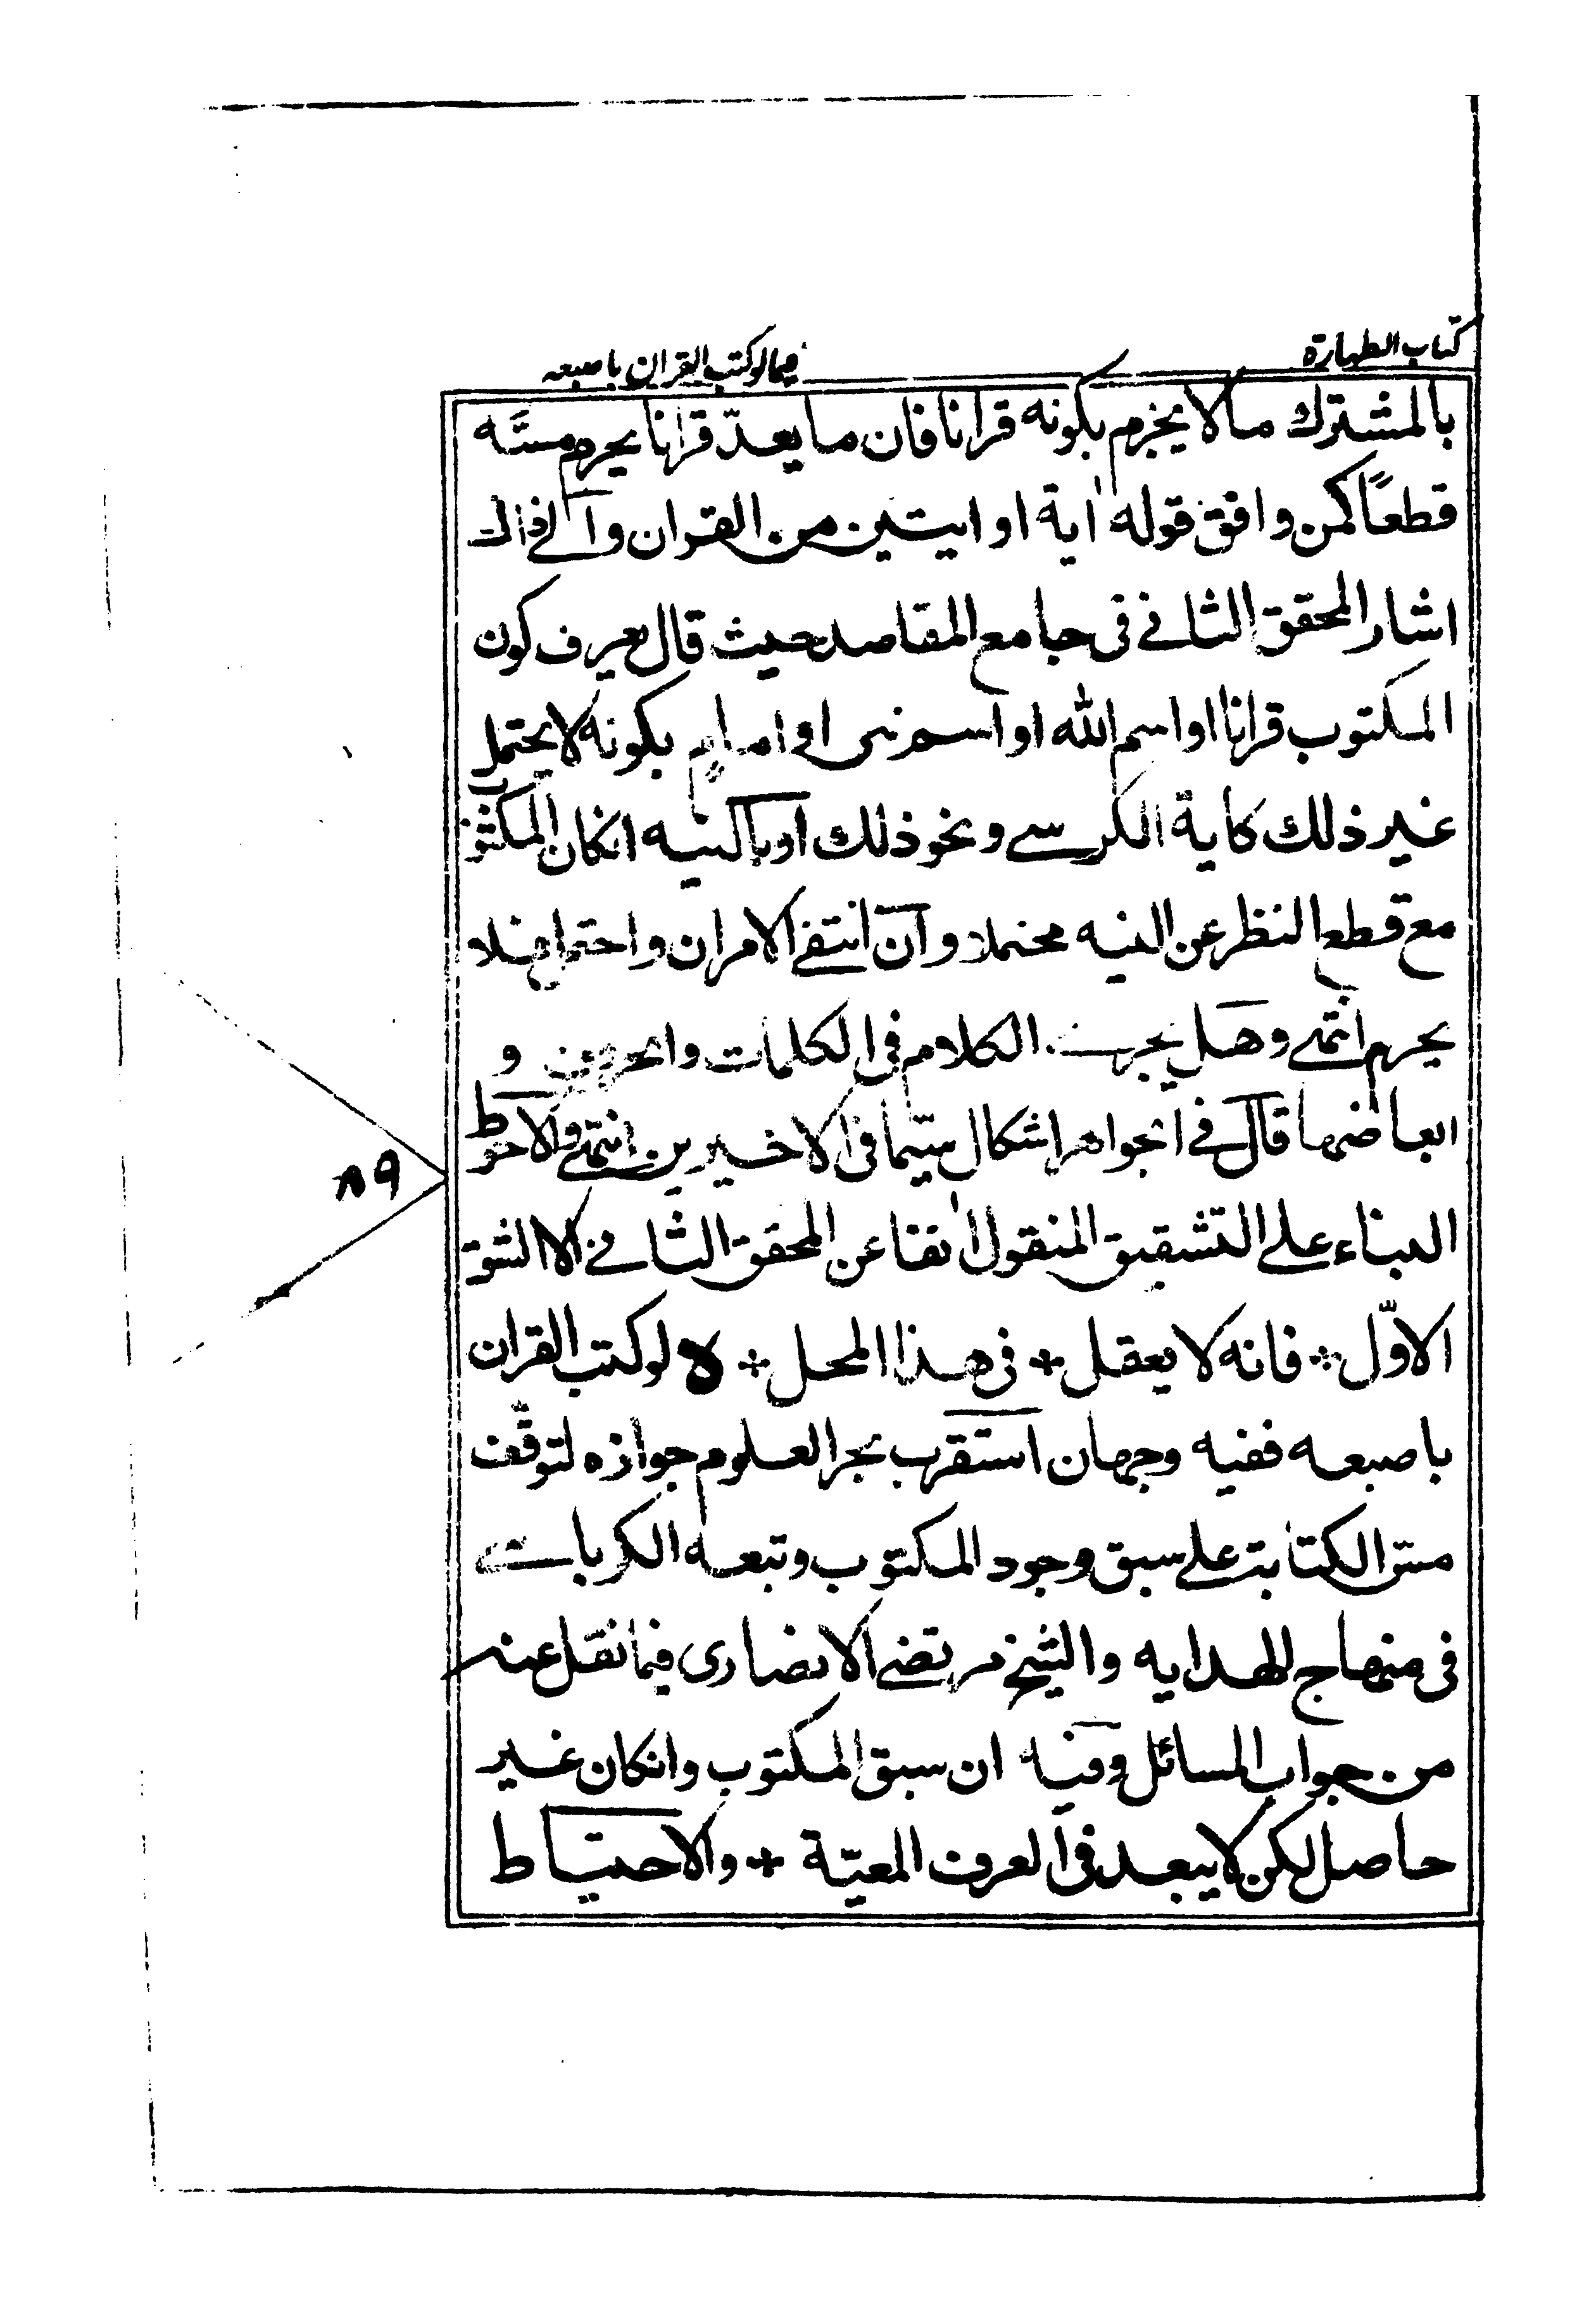 كتاب الطهارة
فيما لو كتب القران باصبعه
بالمشترك ما لا يجزم بكونه قرانا فان ما يعدّ قرانا يحرم مسّه
قطعًا كمن وافق قوله اية او ايتين من القران والى ذلك
اشار المحقق الثانى فى جامع المقاصد حيث قال يعرف كون
المكتوب قرانا او اسم الله او اسم نبى او امام بكونه لا يحتمل
غير ذلك كاية الكرسى ونحو ذلك او بالنيه انكان المكتوب
مع قطع النظر عن النيه محتملا وان انتفى الامران واحتمل فلا
يحرم انتهى وهل يجرى الكلام فى الكلمات والحروف و
ابعاضها قال فى الجواهر اشكال سيّما فى الاخيرين انتهى والاحوط
البناء على التشقيق المنقول انفا عن المحقق الثانى الا الشق
الاوّل * فانه لا يعقل * فى هذا المحل * ه لو كتب القران
باصبعه ففيه وجهان استقرب بحر العلوم جوازه لتوقّف
مسّ الكتابت على سبق وجود المكتوب وتبعه الكرباسى
فى منهاج الهدايه والشيخ مرتضى الانصارى فيما نقل عنه
من جواب المسائل وفيه ان سبق المكتوب وانكان غير
حاصل لكن لا يبعد فى العرف المعيّة * والاحتياط
٨٩